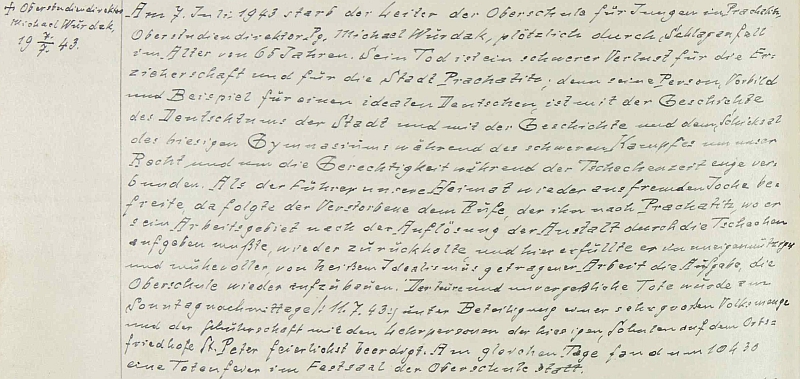 + Oberstudiendirektor
Michael Wurdak,
19 7./7. 43.
Am 7. Juli 1943 starb der Leiter der Oberschule für Jungen in Prachatitz,
Oberstudiendirektor Pg. Michael Wurdak, plötzlich durch Schlaganfall
im Alter von 65 Jahren. Sein Tod ist ein schwerer Verlust für die Er-
zieherschaft und für die Stadt Prachatitz; denn seine Person, Vorbild
und Beispiel für einen idealen Deutschen, ist mit der Geschichte
des Deutschtums der Stadt und mit der Geschichte und dem Schicksal
des hiesigen Gymnasiums während des schweren Kampfes um unser
Recht und um die Gerechtigkeit während der Tschechenzeit enge ver-
bunden. Als der Führer unsere Heimat wieder aus fremden Joche be-
freite, da folgte der Verstorbene dem Rufe, der ihn nach Prachatitz, wo er
sein Arbeitsgebiet nach der Auflösung der Anstalt durch die Tschechen
aufgeben mußte, wieder zurückholte, und hier erfüllte er in uneigennütziger
und mühevoller, von heißem Idealismus getragener Arbeit die Aufgabe, die
Oberschule wieder aufzubauen. Der teure und unvergeßliche Tote wurde am
Sonntagnachmittage /: 11.7.43 :/ unter Beteiligung einer sehr großen Volksmenge
und der Schülerschaft mit den Lehrpersonen der hiesigen Schulen auf dem Orts-
friedhofe St. Peter feierlichst beerdigt. Am gleichen Tage fand um 10h 30
eine Totenfeier im Festsaal der Oberschule statt.